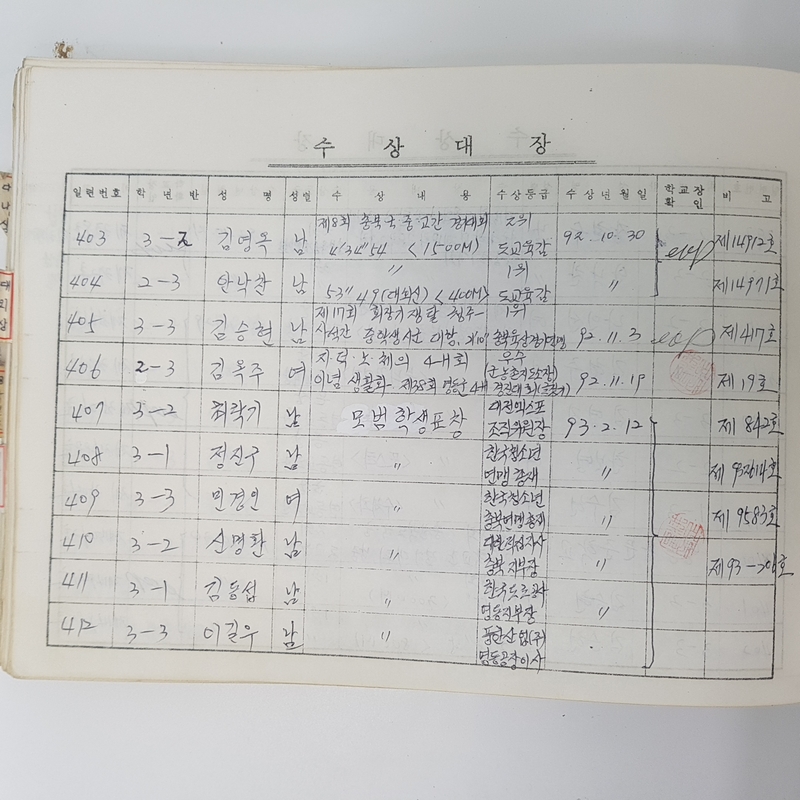 수 상 대 장
일련번호 학년반 성명 성별 수상내용 수상등급 수상년월일 학교장확인 비고
403 3-2 김영옥 남 제8회 충북 중고간 경기대회 2위 92.10.30 제14912호
4'34"54 <1500M> 도교육감
404 2-3 안낙찬 남 〃 1위 〃 제14971호
53"49(대회신) <400M> 도교육감
405 3-3 김승현 남 제17회 회장기쟁탈 청주- 1위 92.11.3 제417호
406 2-3 김옥주 여 지·덕·노·체의 4-H회 우수 92.11.19 제19호
이념 생활화- 제38회 영동군 4-H 경진대회
407 3-2 최락기 남 모범학생표창 대전엑스포 93.2.12 제842호
조직위원장
408 3-1 정진구 남 〃 한국청소년 〃
연맹총재
409 3-3 민경인 여 〃 한국청소년 〃 제9583호
충북연맹총재
410 3-2 신명환 남 〃 대한적십자사 〃
충북지부장
411 3-1 김동섭 남 〃 한국도로공사 〃
영동지부장
412 3-3 이길우 남 〃
영동공장이사